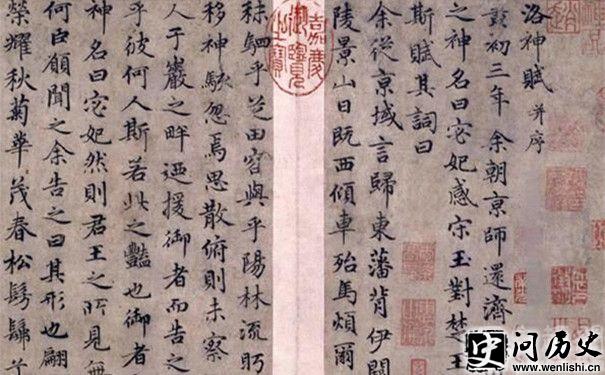 洛神賦 并序
黃初三年余朝京師還濟
之神名曰宓妃感宋玉對楚王
斯賦其詞曰
余從京域言歸東藩背伊闕
陵景山日既西傾車殆馬煩爾
嘉慶御覽之寶
秣駟乎芝田容與乎陽林流眄
移神駭忽焉思散俯則未察
人于巖之畔迺援御者而告之
乎彼何人斯若此之豔也御者
神名曰宓妃然則君王之所見無
何臣願聞之余告之曰其形也翩
榮耀秋菊華茂春松髣髴兮
问历史
www.wenlishi.cn